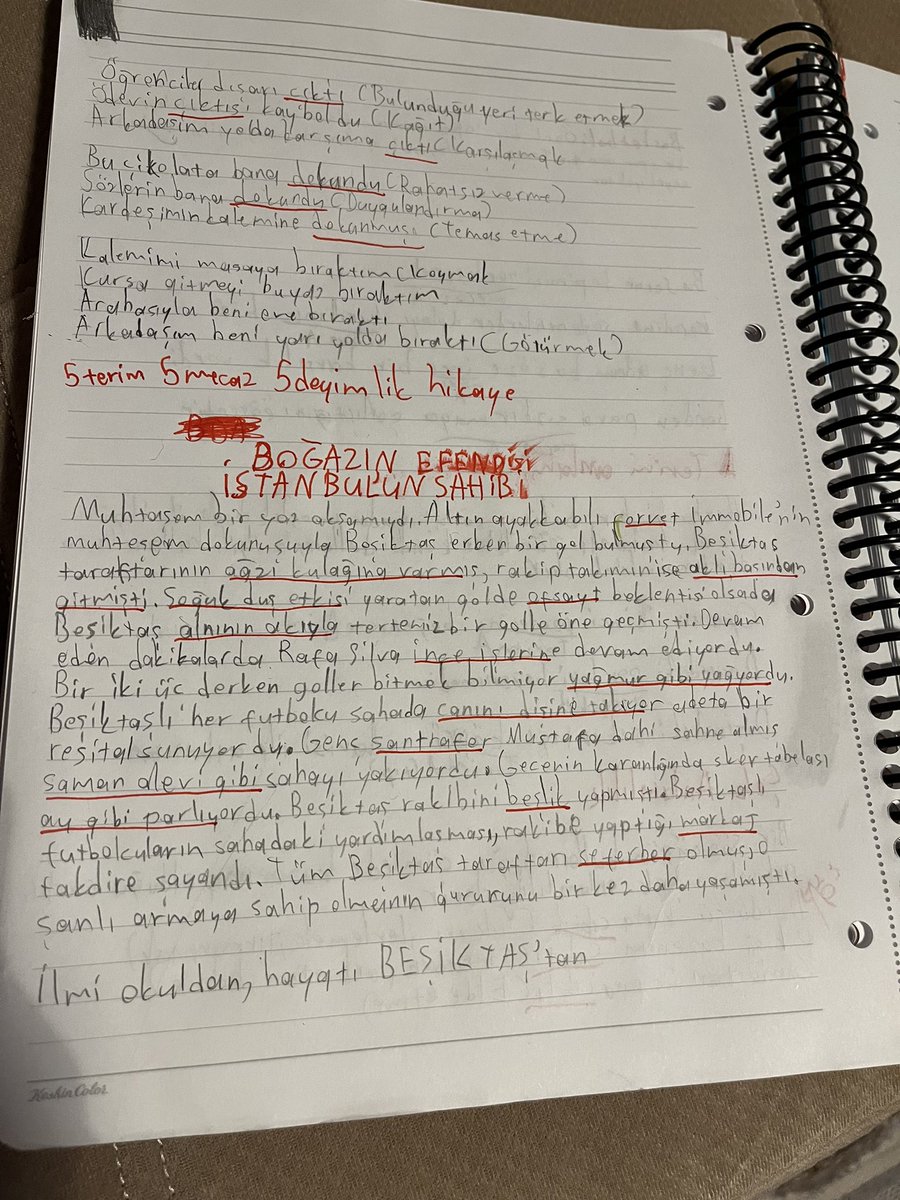 Öğrenciler dışarı çıktı (Bulunduğu yeri terk etmek)
Ödevin çıktısı kayboldu (Kağıt)
Arkadaşım yolda karşıma çıktı (Karşılaşmak
Bu çikolata bana dokundu (Rahatsız verme)
Sözlerin bana dokundu (Duygulandırma)
Kardeşimin kalemine dokunmuş (temas etme)
Kalemimi masaya bıraktım (Koymak
Kursa gitmeyi bu yaz bıraktım
Arabasıyla beni eve bıraktı
Arkadaşım beni yarı yolda bıraktı (Götürmek)
5 terim 5 mecaz 5 deyimlik hikaye
BOĞAZIN EFENDİSİ
İSTANBUL'UN SAHİBİ
Muhtaşem bir yaz akşamıydı. Altın ayakkabılı forvet İmmobile'nin
muhteşem dokunuşuyla Beşiktaş erken bir gol bulmuştu. Beşiktaş
taraftarının ağzı kulağına varmış, rakip takımın ise aklı başından
gitmişti. Soğuk duş etkisi yaratan golde ofsayt beklentisi olsada
Beşiktaş alnının akıyla tertemiz bir golle öne geçmişti. Devam
eden dakikalarda Rafa Silva ince işlerine devam ediyordu.
Bir iki üç derken goller bitmek bilmiyor yağmur gibi yağıyordu.
Beşiktaşlı her futbolcu sahada canını dişine takıyor adeta bir
resital sunuyordu. Genç santrafor Mustafa dahi sahne almış
saman alevi gibi sahayı yakıyordu. Gecenin karanlığında skor tabelası
ay gibi parlıyordu. Beşiktaş rakibini beşlik yapmıştı. Beşiktaşlı
futbolcuların sahadaki yardımlaşması, rakibe yaptığı markaj
takdire şayandı. Tüm Beşiktaş taraftarı seferber olmuş, o
şanlı armaya sahip olmanın gururunu bir kez daha yaşamıştı.
İlmi okuldan, hayatı BEŞİKTAŞ'tan
Keskin Color